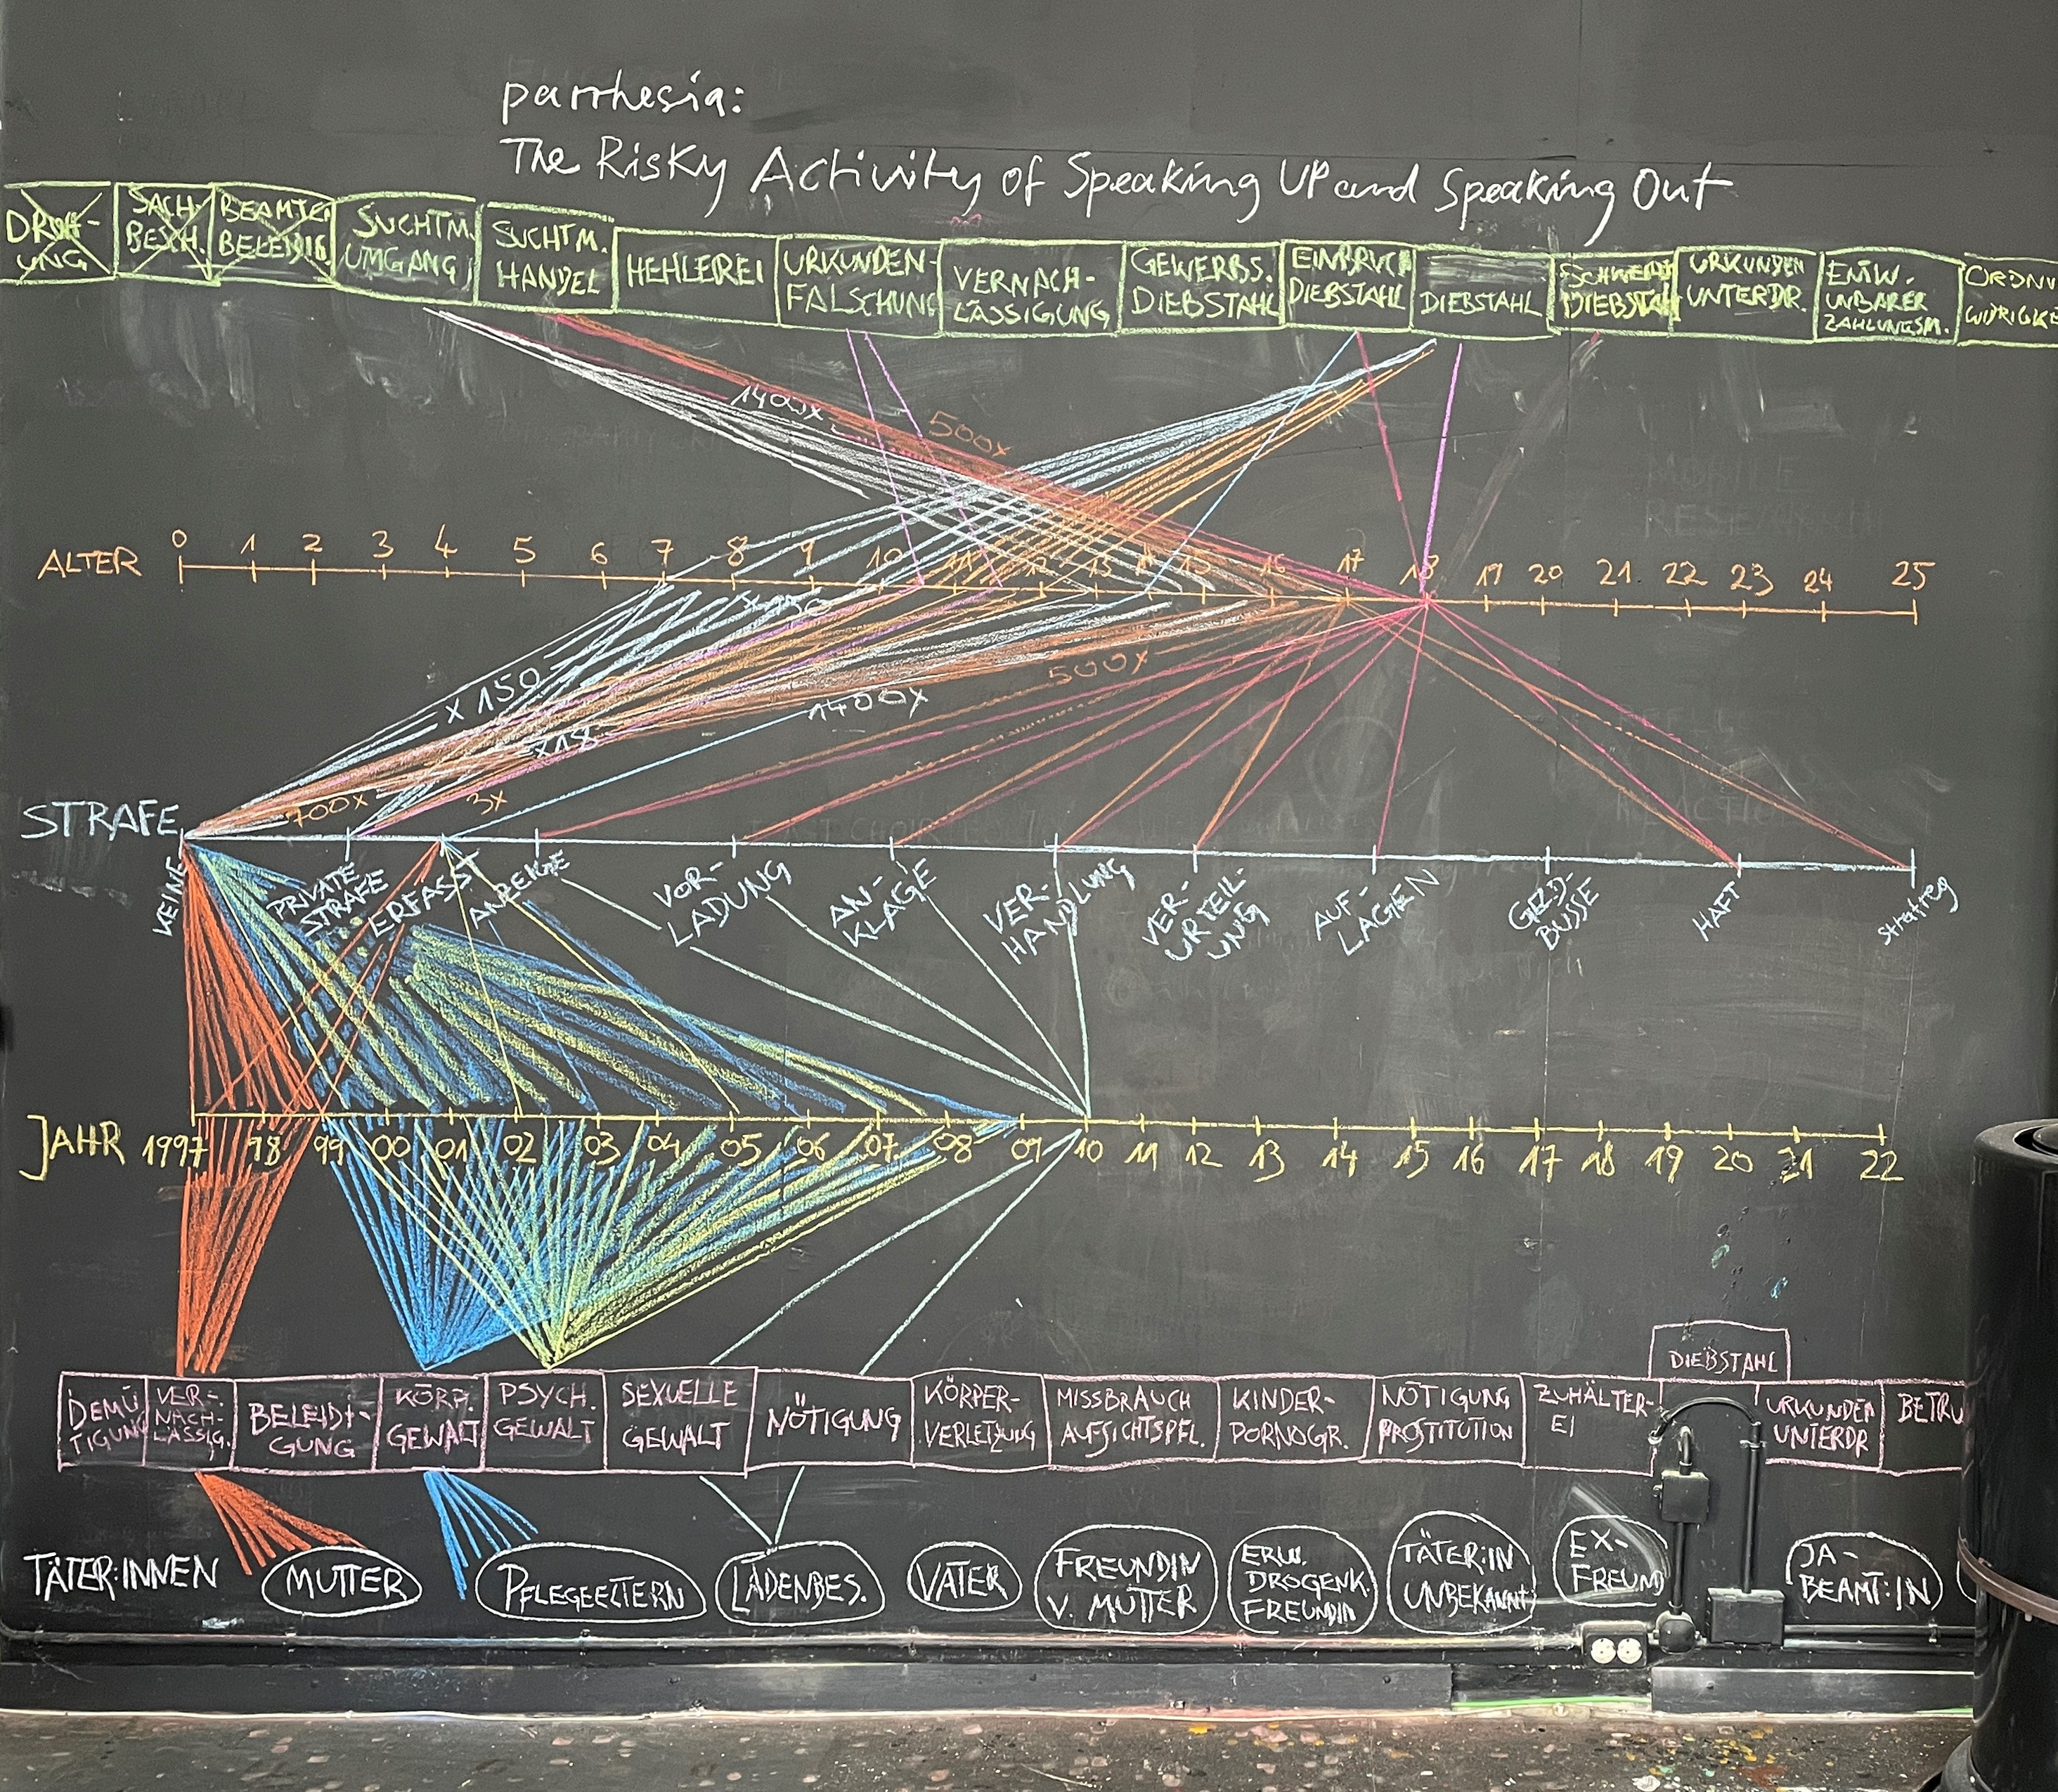 parrhesia:
The Risky Activity of Speaking Up and Speaking Out
DROH-
UNG
SACH-
BESCH.
BEAMTEN
BELEIDIG.
SUCHTM.
UMGANG
SUCHTM.
HANDEL
HEHLEREI
URKUNDEN-
FALSCHUNG
VERNACH-
LÄSSIGUNG
GEWERBS.
DIEBSTAHL
EINBRUCH
DIEBSTAHL
DIEBSTAHL
SCHWERER
DIEBSTAHL
URKUNDEN
UNTERDR.
ENTW.
UNBARER
ZAHLUNGSM.
ORDNU
WIDRIGKE
1400x
500x
ALTER 0 1 2 3 4 5 6 7 8 9 10 11 12 13 14 15 16 17 18 19 20 21 22 23 24 25
x150
x150
500x
1400x
x18
700x
3x
STRAFE
KEINE
PRIVATE
STRAFE
ERFASST
ANZEIGE
VOR-
LADUNG
AN-
KLAGE
VER-
HANDLUNG
VER-
URTEIL-
UNG
AUF-
LAGEN
GELD-
BUSSE
HAFT
JAHR 1997 98 99 00 01 02 03 04 05 06 07 08 09 10 11 12 13 14 15 16 17 18 19 20 21 22
DIEBSTAHL
DEMÜ
TIGUNG
VER-
NACH-
LÄSSIG.
BELEIDI-
GUNG
KÖRP.
GEWALT
PSYCH.
GEWALT
SEXUELLE
GEWALT
NÖTIGUNG
KÖRPER-
VERLETZUNG
MISSBRAUCH
AUFSICHTSPFL.
KINDER-
PORNOGR.
NÖTIGUNG
PROSTITUTION
ZUHÄLTER-
EI
URKUNDEN
UNTERDR
BETRU
TÄTER:INNEN
MUTTER
PFLEGEELTERN
LADENBES.
VATER
FREUNDIN
V. MUTTER
ERW.
DROGENK.
FREUNDIN
TÄTER:IN
UNBEKANNT
EX-
FREUND
JA-
BEAMT:IN